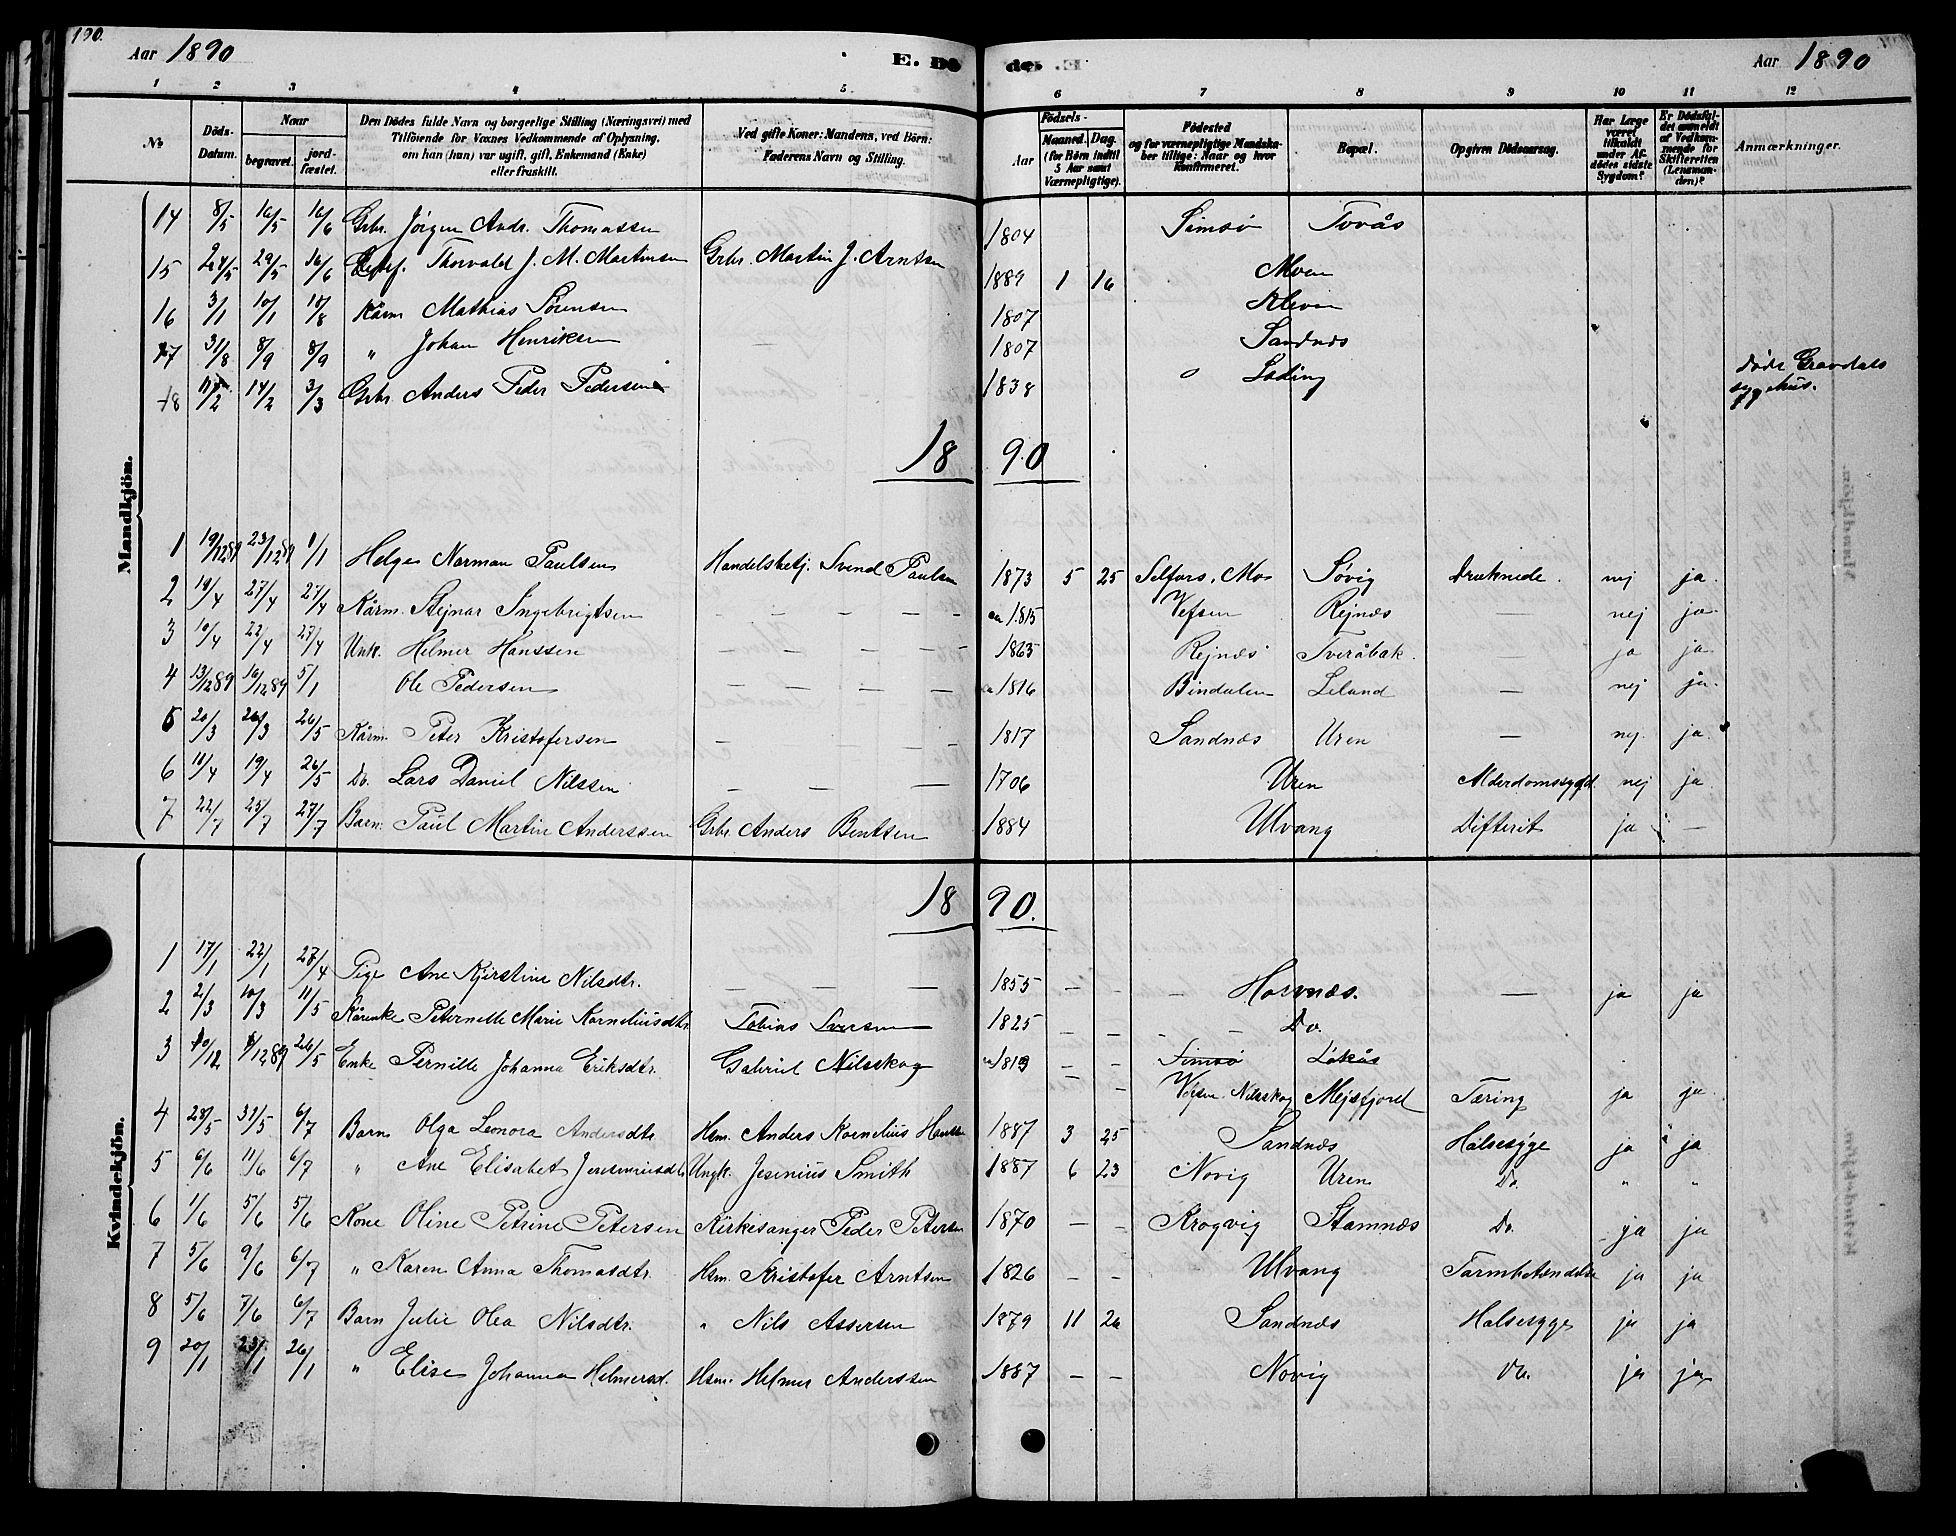 190.
Aar 1890 E. Dö de. Aar 1890
1 2 3 4 5 6 7 8 9 10 11 12
№ Döds-Datum. Naar begravet. jordfæstet. Den Dödes fulde Navn og borgerlige Stilling (Næringsvei) med Tilföiende for Voxnes Vedkommende af Oplysning, om han (hun) var ugift, gift, Enkemand (Enke) eller fraskilt. Ved gifte Koner: Mandens, ved Börn: Faderens Navn og Stilling. Födsels- Aar Maaned. Dag. (for Börn indtil 5 Aar samt Værnepligtige). Födested og for værnepligtige Mandskaber tillige: Naar og hvor Konfirmeret. Bopæl. Opgiven Dödsaarsag. Har Læge været tilkaldt under Afdödes sidste Sygdom? Er Dödsfaldet anmeldt af Vedkommende for Skifteretten (Lensmanden)? Anmærkninger.
Mandkjön.
14 8/5 16/5 16/6 Grbr. Jörgen Andr. Thomassen 1804 Simsö Tovås
15 24/5 29/5 16/6 Thorvald J. M. Martinsen Grbr. Martin J. Arntsen 1889 1 16 Moen
16 3/1 10/1 10/8 Kårm Mathias Sörensen 1807 Kleven
17 31/8 8/9 8/9 " Johan Henriksen 1807 Sandnæs
18 11/2 14/2 3/3 Grbr Anders Peder Pedersen 1838 Leding döde Gravdals sygehus.
18 90
1 19/12 89 23/12 89 1/1 Helge Norman Paulsen Handelsbetj. Svend Paulsen 1873 5 25 Selfors, Mo Sövig Druknede. nej ja.
2 18/4 27/4 27/4 Kårm. Stejnar Ingebrigtsen — — — — — ca 1815 Vefsen Rejnæs — nej ja.
3 10/4 22/4 27/4 Unk. Helmer Hanssen — — — — — 1865 Rejnæs Tveråbak. — ja ja.
4 13/12 89 16/12 89 5/1 Ole Pedersen — — — — — ca 1816 Bindalen Leland — nej ja.
5 20/3 26/3 26/5 Kårm. Peter Kristofersen — — — — 1817 Sandnæs Uren — nej. ja.
6 11/4 19/4 26/5 Do. Lars Daniel Nilssen — — — — 1706 Uren Alderdomssygd. nej ja
7 22/7 25/7 27/7 Barn. Paul Martin Anderssen Grbr Anders Bentsen 1884 Ulvang Difterit ja —
Kvindekjön.
18 90.
1 17/1 22/1 27/4 Pige Ane Kjerstine Nilsdtr. — — — 1855 — — — Horvnæs. — ja ja
2 2/3 10/3 11/5 Kårenke Peternelle Marie Kornelliusdtr Tobias Iversen 1825 — — — — Do.
3 10/12 12 89 26/5 Enke Pernille Johanna Eriksdtr. Gabriel Nilsskog 1819 — — Simsö Låkås
Vefsn. Nilsskog Mejsfjord Tæring ja ja.
4 28/5 31/5 6/7 Barn Olga Leonora Andersdtr. Hsm. Anders Kornelius Hanssen 1887 3 25 Sandnæs Halsesyge ja ja
5 6/6 11/6 6/7 " Ane Elisabet Jeseniusdtr Ungk. Jesinius Smith 1887 6 23 Novig Uren Do. " "
6 1/6 5/6 5/6 Kone Oline Petrine Petersen Kirkesanger Peder Petersen 1870 — — Krogvig Stamnæs Do. ja ja
7 5/6 9/6 6/7 " Karen Anna Thomasdtr. Hsm. Kristofer Arntsen 1826 — — Ulvang Tarmbetændelse ja ja
8 5/6 7/6 6/7 Barn Julie Olea Nilsdtr. " Nils Assersen 1879 11 26 Sandnæs Halsesyge ja ja
9 20/1 23/1 26/1 " Elise Johanna Helmersd. Hsm. Helmer Anderssen 1887 — — Novig Do. ja ja